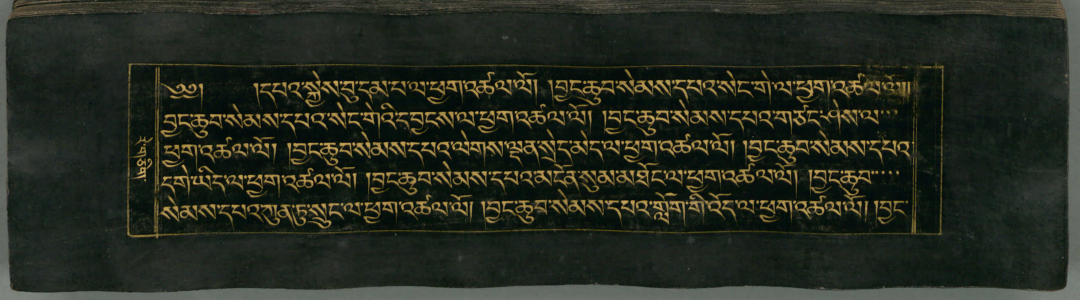 ༄༅། །དཔའ་སྐྱེས་བུ་དམ་པ་ལ་ཕྱག་འཚལ་ལོ། །བྱང་ཆུབ་སེམས་དཔའ་སེང་གེ་ལ་ཕྱག་འཚལ་ལོ།།
བྱང་ཆུབ་སེམས་དཔའ་སེང་གེའི་དབྱངས་ལ་ཕྱག་འཚལ་ལོ། །བྱང་ཆུབ་སེམས་དཔའ་གཙང་ཤེས་ལ་
ཕྱག་འཚལ་ལོ། །བྱང་ཆུབ་སེམས་དཔའ་ལེགས་ལྡན་སྲེད་མེད་ལ་ཕྱག་འཚལ་ལོ། །བྱང་ཆུབ་སེམས་དཔའ་
དགེ་ཡིད་ལ་ཕྱག་འཚལ་ལོ། །བྱང་ཆུབ་སེམས་དཔའ་མངོན་སུམ་མཐོང་ལ་ཕྱག་འཚལ་ལོ། །བྱང་ཆུབ་
སེམས་དཔའ་ཀུན་ཏུ་སྲུང་ལ་ཕྱག་འཚལ་ལོ། །བྱང་ཆུབ་སེམས་དཔའ་གློག་གི་འོད་ལ་ཕྱག་འཚལ་ལོ། །བྱང་